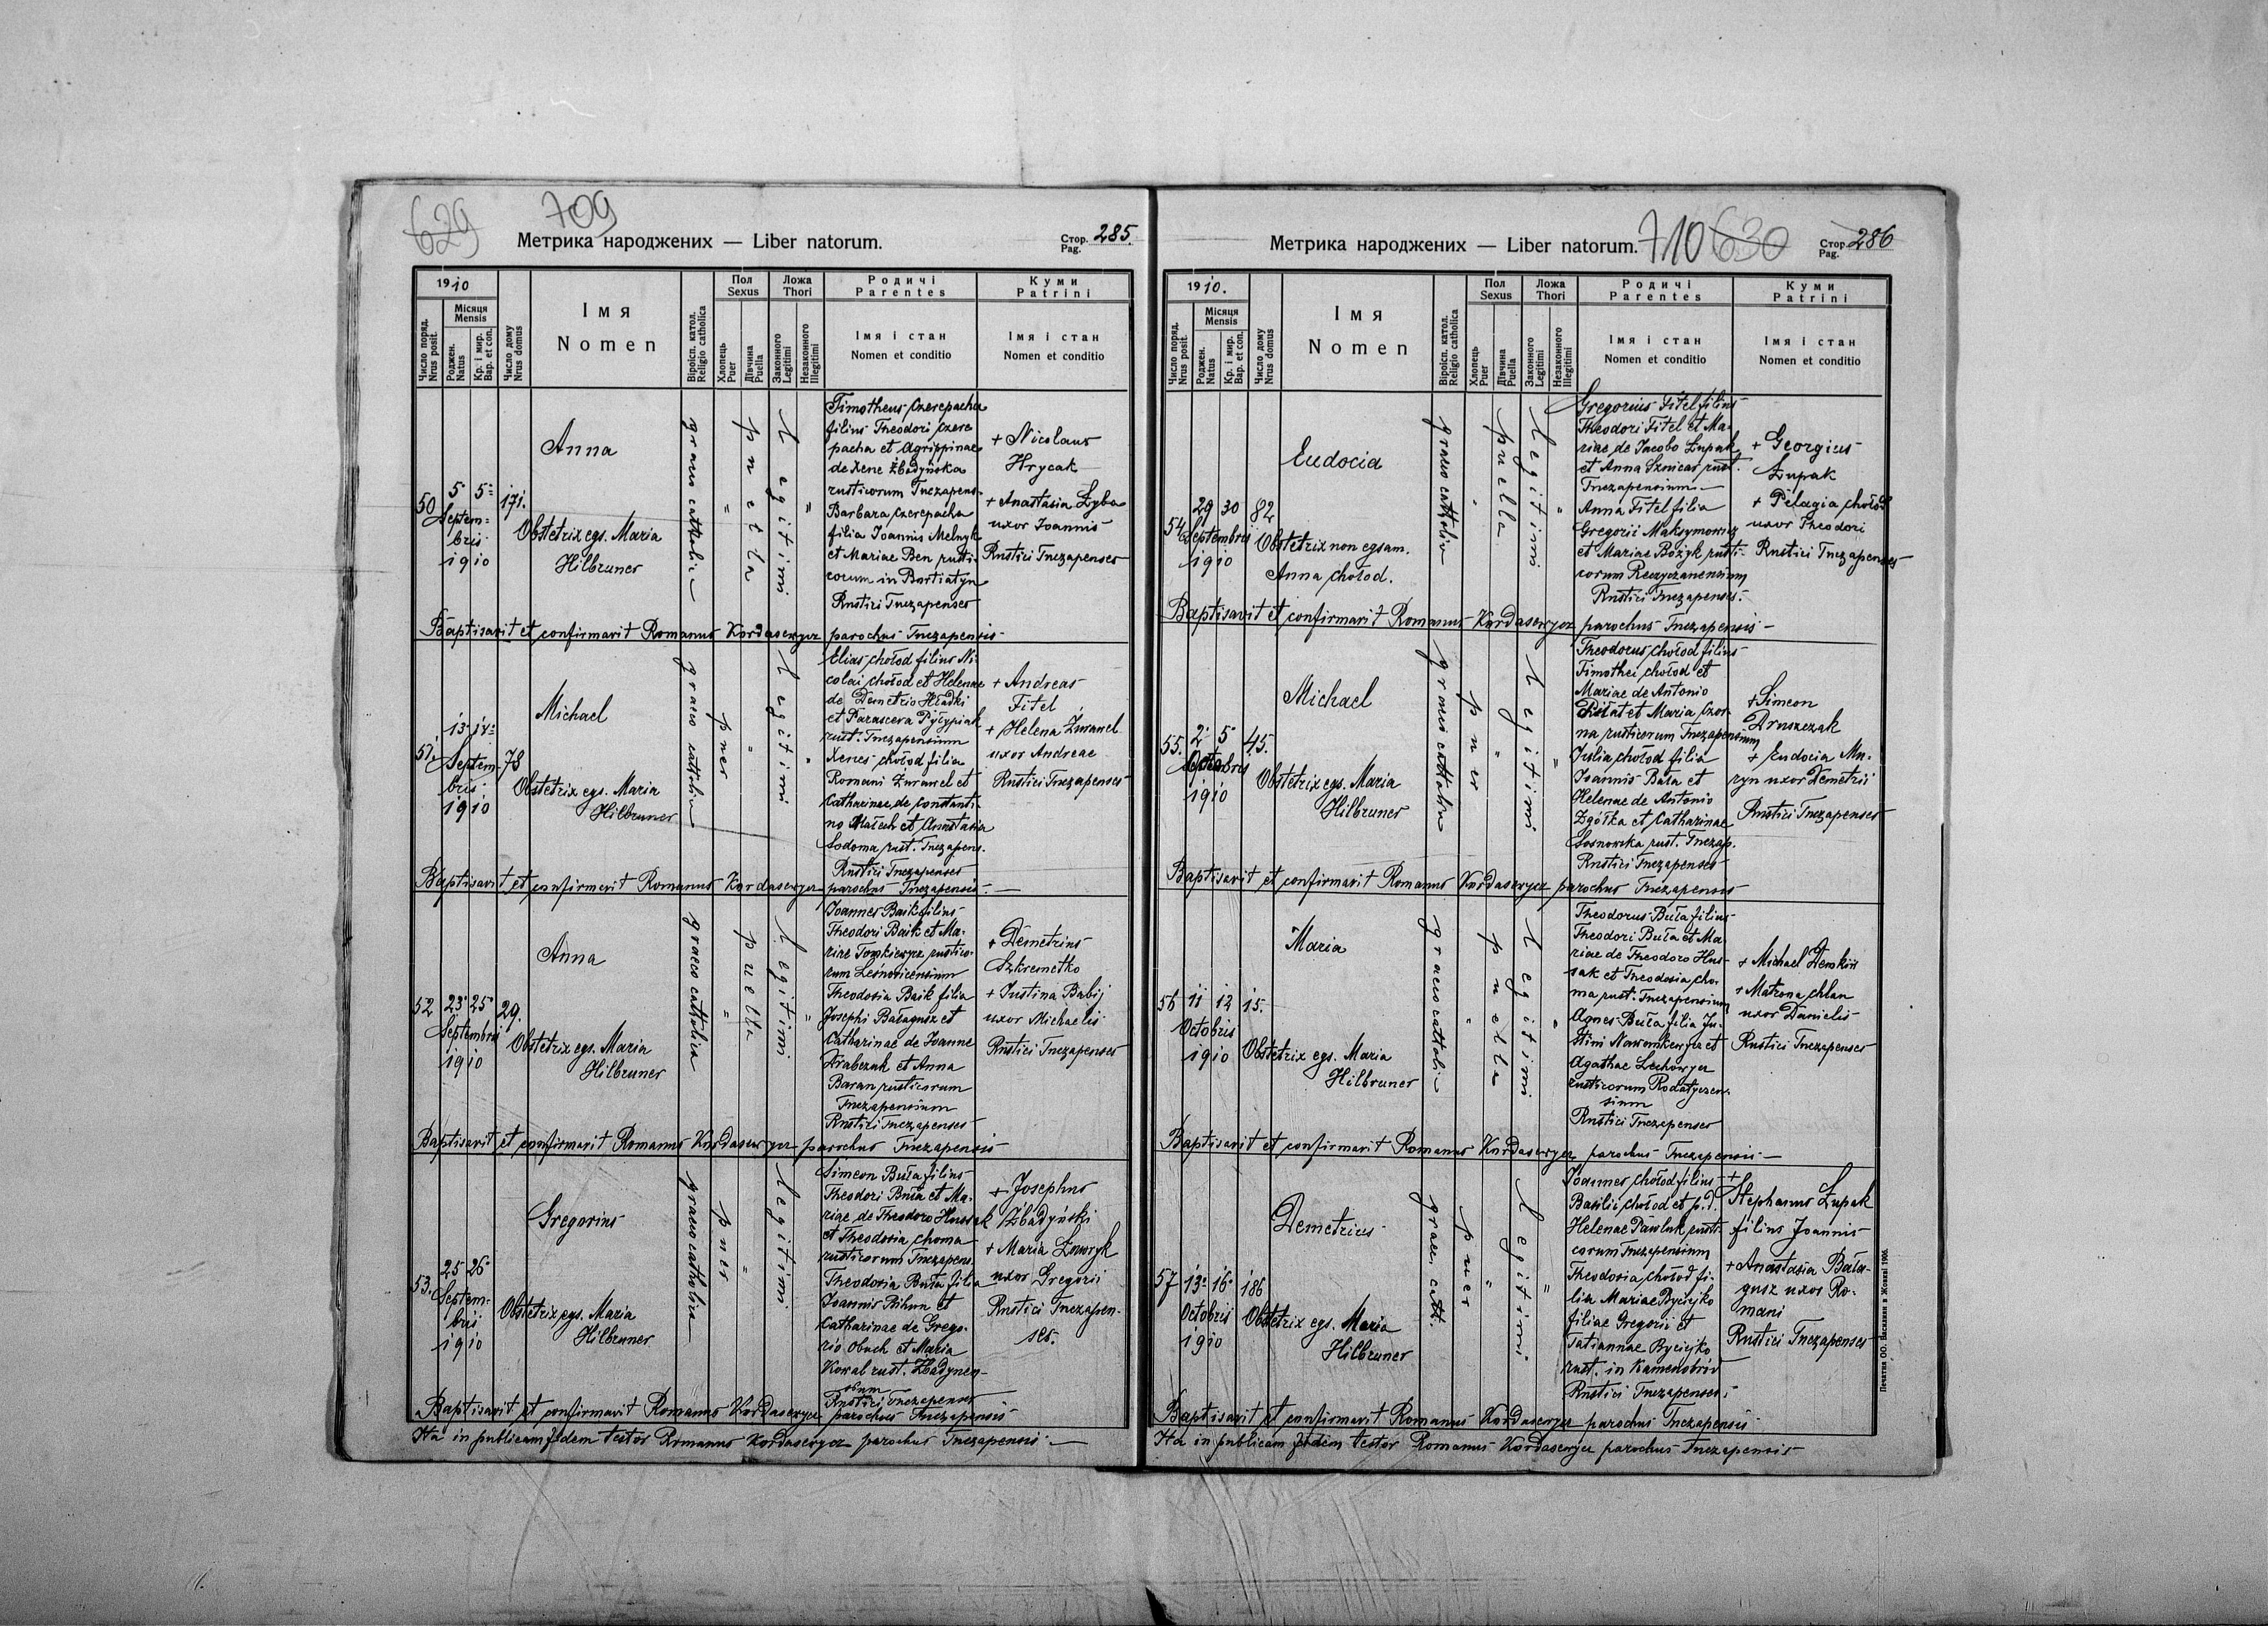 629 709
Метрика народжених — Liber natorum.
Стор. Pag. 285.
1910
Місяця Mensis
Число поряд. Nrus posit.
Роджен. Natus
Кр. і мир. Bap. et con.
Число дому Nrus domus
Імя Nomen
Віроісп. катол. Religio catholica
Пол Sexus
Хлопець Puer
Дівчина Puella
Ложа Thori
Законного Legitimi
Незаконного Illegitimi
Родичі Parentes
Імя і стан Nomen et conditio
Куми Patrini
Імя і стан Nomen et conditio
50
5 5
Septem-
bris
1910
171.
Anna
Obstetrix egs. Maria
Hilbruner
graeco cattolica
puella
Legitimi
Timotheus Czerepacha
filius Theodori Czere
pacha et Agrippinae
de Xene Zbadyńska
rusticorum Tuczapens-
Barbara Czerepacha
filia Joannis Melnyk
et Mariae Ben rusti-
corum in Bortiatyn
Rustici Tuczapenses
+ Nicolaus
Hrycak
+ Anastasia Łyba
uxor Joannis
Rustici Tuczapenses
Baptisavit et confirmavit Romanus Kordasewycz parochus Tuczapensis
51.
13 14
Septem-
bris
1910
78
Michael
Obstetrix egs. Maria
Hilbruner
graeco cattolica
puer
Legitimi
Elias Chołod filius Ni-
colai Chołod et Helenae
de Demetrio Hładki
et Parasceva Pyłypiak
rust. Tuczapensium
Xenes Chołod filia
Romani Żurawel et
Catharinae de Constanti-
no Małech et Anastasia
Sodoma rust. Tuczapens.
Rustici Tuczapenses
+ Andreas
Fitel
+ Helena Żurawel
uxor Andreae
Rustici Tuczapenses
Baptisavit et confirmavit Romanus Kordasewycz parochus Tuczapensis
52
23 25
Septembris
1910
29.
Anna
Obstetrix egs. Maria
Hilbruner
graeco cattolica
puella
Legitimi
Joannes Baik filius
Theodori Baik et Ma-
riae Tomkiewycz rustico-
rum Leśnovicensium
Theodosia Baik filia
Josephi Bałagusz et
Catharinae de Joanne
Hrabczak et Anna
Baran rusticorum
Tuczapensium
Rustici Tuczapenses
+ Demetrius
Szkremetko
+ Justina Babij
uxor Michaelis
Rustici Tuczapenses
Baptisavit et confirmavit Romanus Kordasewycz parochus Tuczapensis
53.
25 26
Septem-
bris
1910
Gregorius
Obstetrix egs. Maria
Hilbruner
graeco catholica
puer
Legitimi
Simeon Buła filius
Theodori Buła et Ma-
riae de Theodoro Hussak
et Theodosia Choma
rusticorum Tuczapens.
Theodosia Buła filia
Joannis Rihun et
Catharinae de Grego-
rio Obuch et Maria
Kowal rust. Zbadynen-
sium
Rustici Tuczapenses
+ Josephus
Zbadyński
+ Maria Ławryk
uxor Gregorii
Rustici Tuczapen-
ses.
Baptisavit et confirmavit Romanus Kordasewycz parochus Tuczapensis
Ita in publicam fidem testor Romanus Kordasewycz parochus Tuczapensis
Метрика народжених — Liber natorum.
710 630
Стор. Pag. 286
1910.
Місяця Mensis
Число поряд. Nrus posit.
Роджен. Natus
Кр. і мир. Bap. et con.
Число дому Nrus domus
Імя Nomen
Віроісп. катол. Religio catholica
Пол Sexus
Хлопець Puer
Дівчина Puella
Ложа Thori
Законного Legitimi
Незаконного Illegitimi
Родичі Parentes
Імя і стан Nomen et conditio
Куми Patrini
Імя і стан Nomen et conditio
54
29 30
Septembris
1910
82
Eudocia
Obstetrix non egsam.
Anna Chołod.
graeco cattolica
puella
Legitimi
Gregorius Fitel filius
Theodori Fitel et Ma-
riae de Jacobo Łupak
et Anna Sznicar rust.
Tuczapensium
Anna Fitel filia
Gregorii Maksymowicz
et Mariae Bożyk rusti-
corum Reczyczanensium
Rustici Tuczapenses.
+ Georgius
Łupak
+ Pelagia Chołod
uxor Theodori
Rustici Tuczapenses
Baptisavit et confirmavit Romanus Kordasewycz parochus Tuczapensis
55.
2 5
Octobris
1910
45.
Michael
Obstetrix egs. Maria
Hilbruner
graeco cattolica
puer
Legitimi
Theodorus Chołod filius
Timothei Chołod et
Mariae de Antonio
et Maria Czor-
na rusticorum Tuczapensium
Julia Chołod filia
Joannis Buła et
Helenae de Antonio
Zgółka et Catharinae
Sosnowska rust. Tuczap.
Rustici Tuczapenses
+ Simeon
Druszczak
+ Eudocia Mu-
ryn uxor Demetrii
Rustici Tuczapenses
Baptisavit et confirmavit Romanus Kordasewycz parochus Tuczapensis
56
11 12
Octobris
1910
15.
Maria
Obstetrix egs. Maria
Hilbruner
graeco cattolica
puella
Legitimi
Theodorus Buła filius
Theodori Buła et Ma-
riae de Theodoro Hus-
sak et Theodosia Cho-
ma rust. Tuczapensium
Agnes Buła filia Ju-
stini Nawomkewycz et
Agathae Lechowycz
rusticorum Rodatyczen-
sium
Rustici Tuczapenses
+ Michael Demkiw
+ Matrona Chlan
uxor Danielis
Rustici Tuczapenses
Baptisavit et confirmavit Romanus Kordasewycz parochus Tuczapensis
57
13 16
Octobris
1910
186
Demetrius
Obstetrix egs. Maria
Hilbruner
graeco catt.
puer
Legitimi
Joannes Chołod filius
Basilii Chołod et p.d.
Helenae Pawluk rusti-
corum Tuczapensium
Theodosia Chołod fi-
lia Mariae Byciejko
filiae Gregorii et
Tatiannae Byciejko
rust. in Kamenobród
Rustici Tuczapenses.
+
Stephanus Łupak
filius Joannis
+ Anastasia Bała-
gusz uxor Ro-
mani
Rustici Tuczapenses
Baptisavit et confirmavit Romanus Kordasewycz parochus Tuczapensis
Ita in publicam fidem testor Romanus Kordasewycz parochus Tuczapensis
Печатня ОО. Василиян в Жовкві 1906.